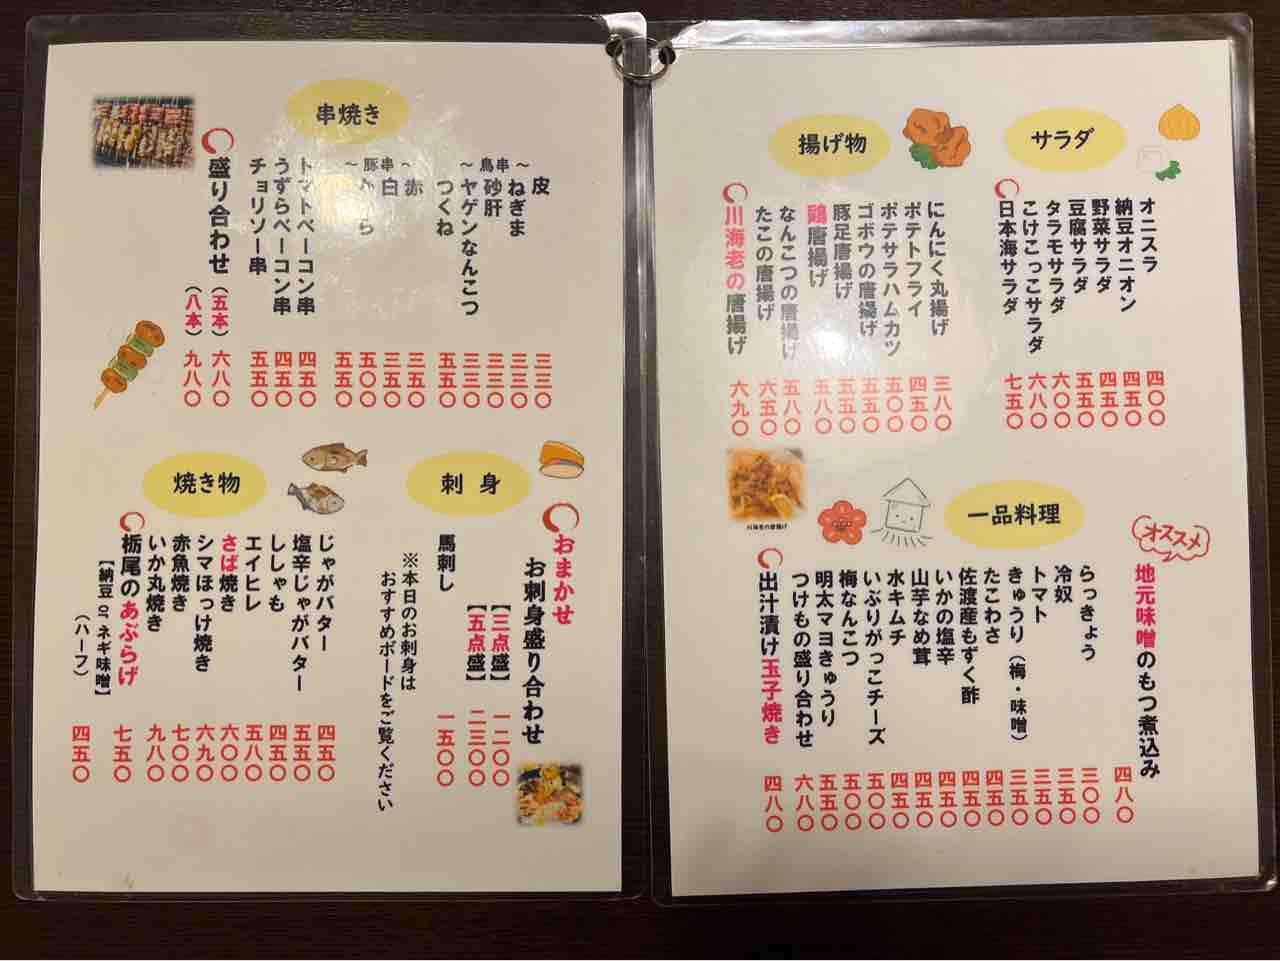 サラダ
オニスラ 四〇〇
納豆オニオン 四五〇
野菜サラダ 四五〇
豆腐サラダ 五五〇
タラモサラダ 六〇〇
こけこっこサラダ 六八〇
日本海サラダ 七五〇
揚げ物
にんにく丸揚げ 三八〇
ポテトフライ 四五〇
ポテサラハムカツ 五〇〇
ゴボウの唐揚げ 五五〇
豚足唐揚げ 五五〇
鶏唐揚げ 五八〇
なんこつの唐揚げ 五八〇
たこの唐揚げ 六五〇
川海老の唐揚げ 六九〇
川海老の唐揚げ
一品料理
オススメ
地元味噌のもつ煮込み 四八〇
らっきょう 三〇〇
冷奴 三五〇
トマト 三五〇
きゅうり(梅・味噌) 三五〇
たこわさ 四五〇
佐渡産もずく酢 四五〇
いかの塩辛 四五〇
山芋なめ茸 四五〇
水キムチ 四五〇
いぶりがっこチーズ 五〇〇
梅なんこつ 五〇〇
明太マヨきゅうり 五五〇
つけもの盛り合わせ 六八〇
出汁漬け玉子焼き 四八〇
串焼き
~鳥串~
皮 三三〇
ねぎま 三三〇
砂肝 三三〇
ヤゲンなんこつ 三三〇
つくね 五五〇
~豚串~
赤 三五〇
白 三五〇
五〇〇
五五〇
トマトベーコン串 四五〇
うずらベーコン串 四五〇
チョリソー串 五五〇
盛り合わせ(五本) 六八〇
(八本) 九八〇
刺身
おまかせ
お刺身盛り合わせ
【三点盛】 一二〇〇
【五点盛】 二三〇〇
馬刺し 一五〇〇
※本日のお刺身は
おすすめボードをご覧ください
焼き物
じゃがバター 四五〇
塩辛じゃがバター 五五〇
ししゃも 四五〇
エイヒレ 五八〇
さば焼き 六〇〇
シマほっけ焼き 六九〇
赤魚焼き 七〇〇
いか丸焼き 九八〇
栃尾のあぶらげ 七五〇
【納豆 or ネギ味噌】
(ハーフ) 四五〇